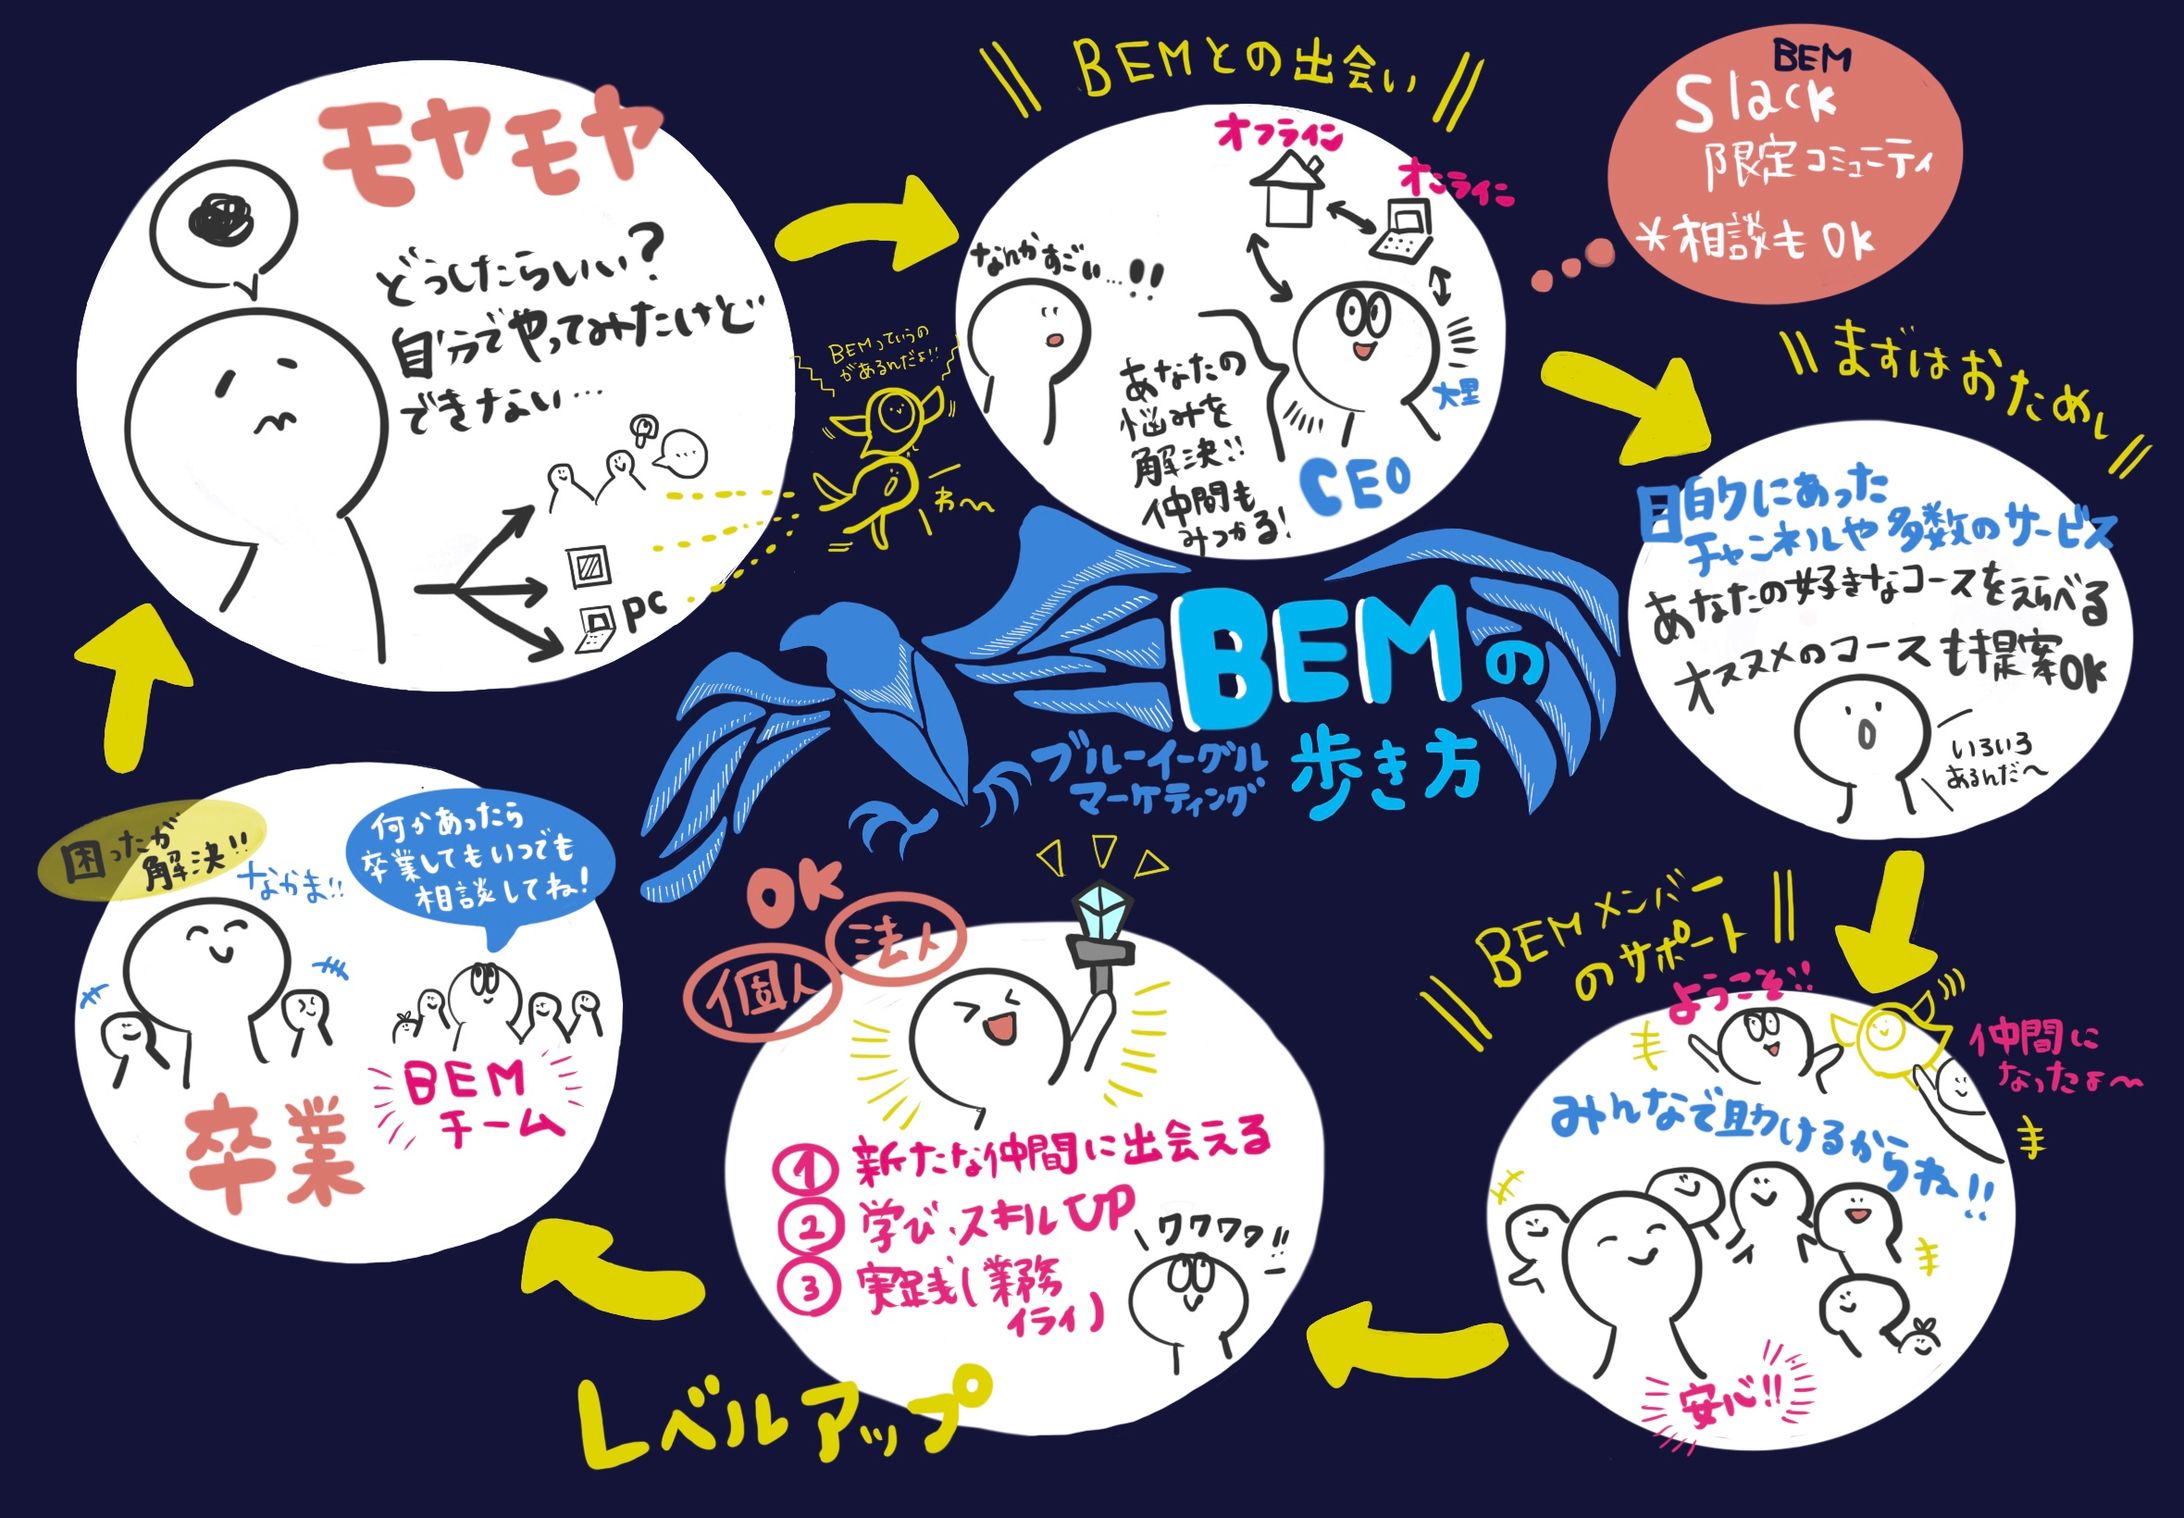 モヤモヤ
どうしたらいい?
自分でやってみたけど
できない…
PC
BEMっていうの
があるんだよ!!
わ〜
BEMとの出会い
オフライン
オンライン
なんかすごい…!!
あなたの
悩みを
解決!!
仲間も
みつかる!
大里
CEO
BEM
Slack
限定コミュニティ
*相談もOK
まずはおためし
目的にあった
チャンネルや多数のサービス
あなたの好きなコースをえらべる
オススメのコースも提案OK
いろいろ
あるんだ〜
BEMの
歩き方
ブルーイーグル
マーケティング
BEMメンバー
のサポート
ようこそ!!
仲間に
なったよ〜
みんなで助けるからね!!
安心!!
OK
個人
法人
① 新たな仲間に出会える
② 学び・スキルUP
③ 実践(業務
イライ)
ワクワク!!
レベルアップ
困ったが
解決!!
なかま!!
何かあったら
卒業してもいつでも
相談してね!
BEM
チーム
卒業